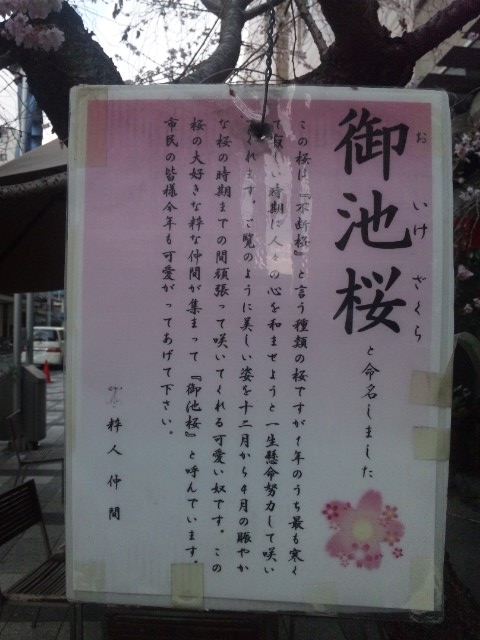 御池桜と命名しました
おいけざくら
この桜は『不断桜』と言う種類の桜ですが1年のうち最も寒く
て寂しい時期に人々の心を和ませようと一生懸命努力して咲い
てくれます。ご覧のように美しい姿を十二月から4月の賑やか
な桜の時期までの間頑張って咲いてくれる可愛い奴です。この
桜の大好きな粋な仲間が集まって『御池桜』と呼んでいます。
市民の皆様今年も可愛がってあげて下さい。
粋人仲間